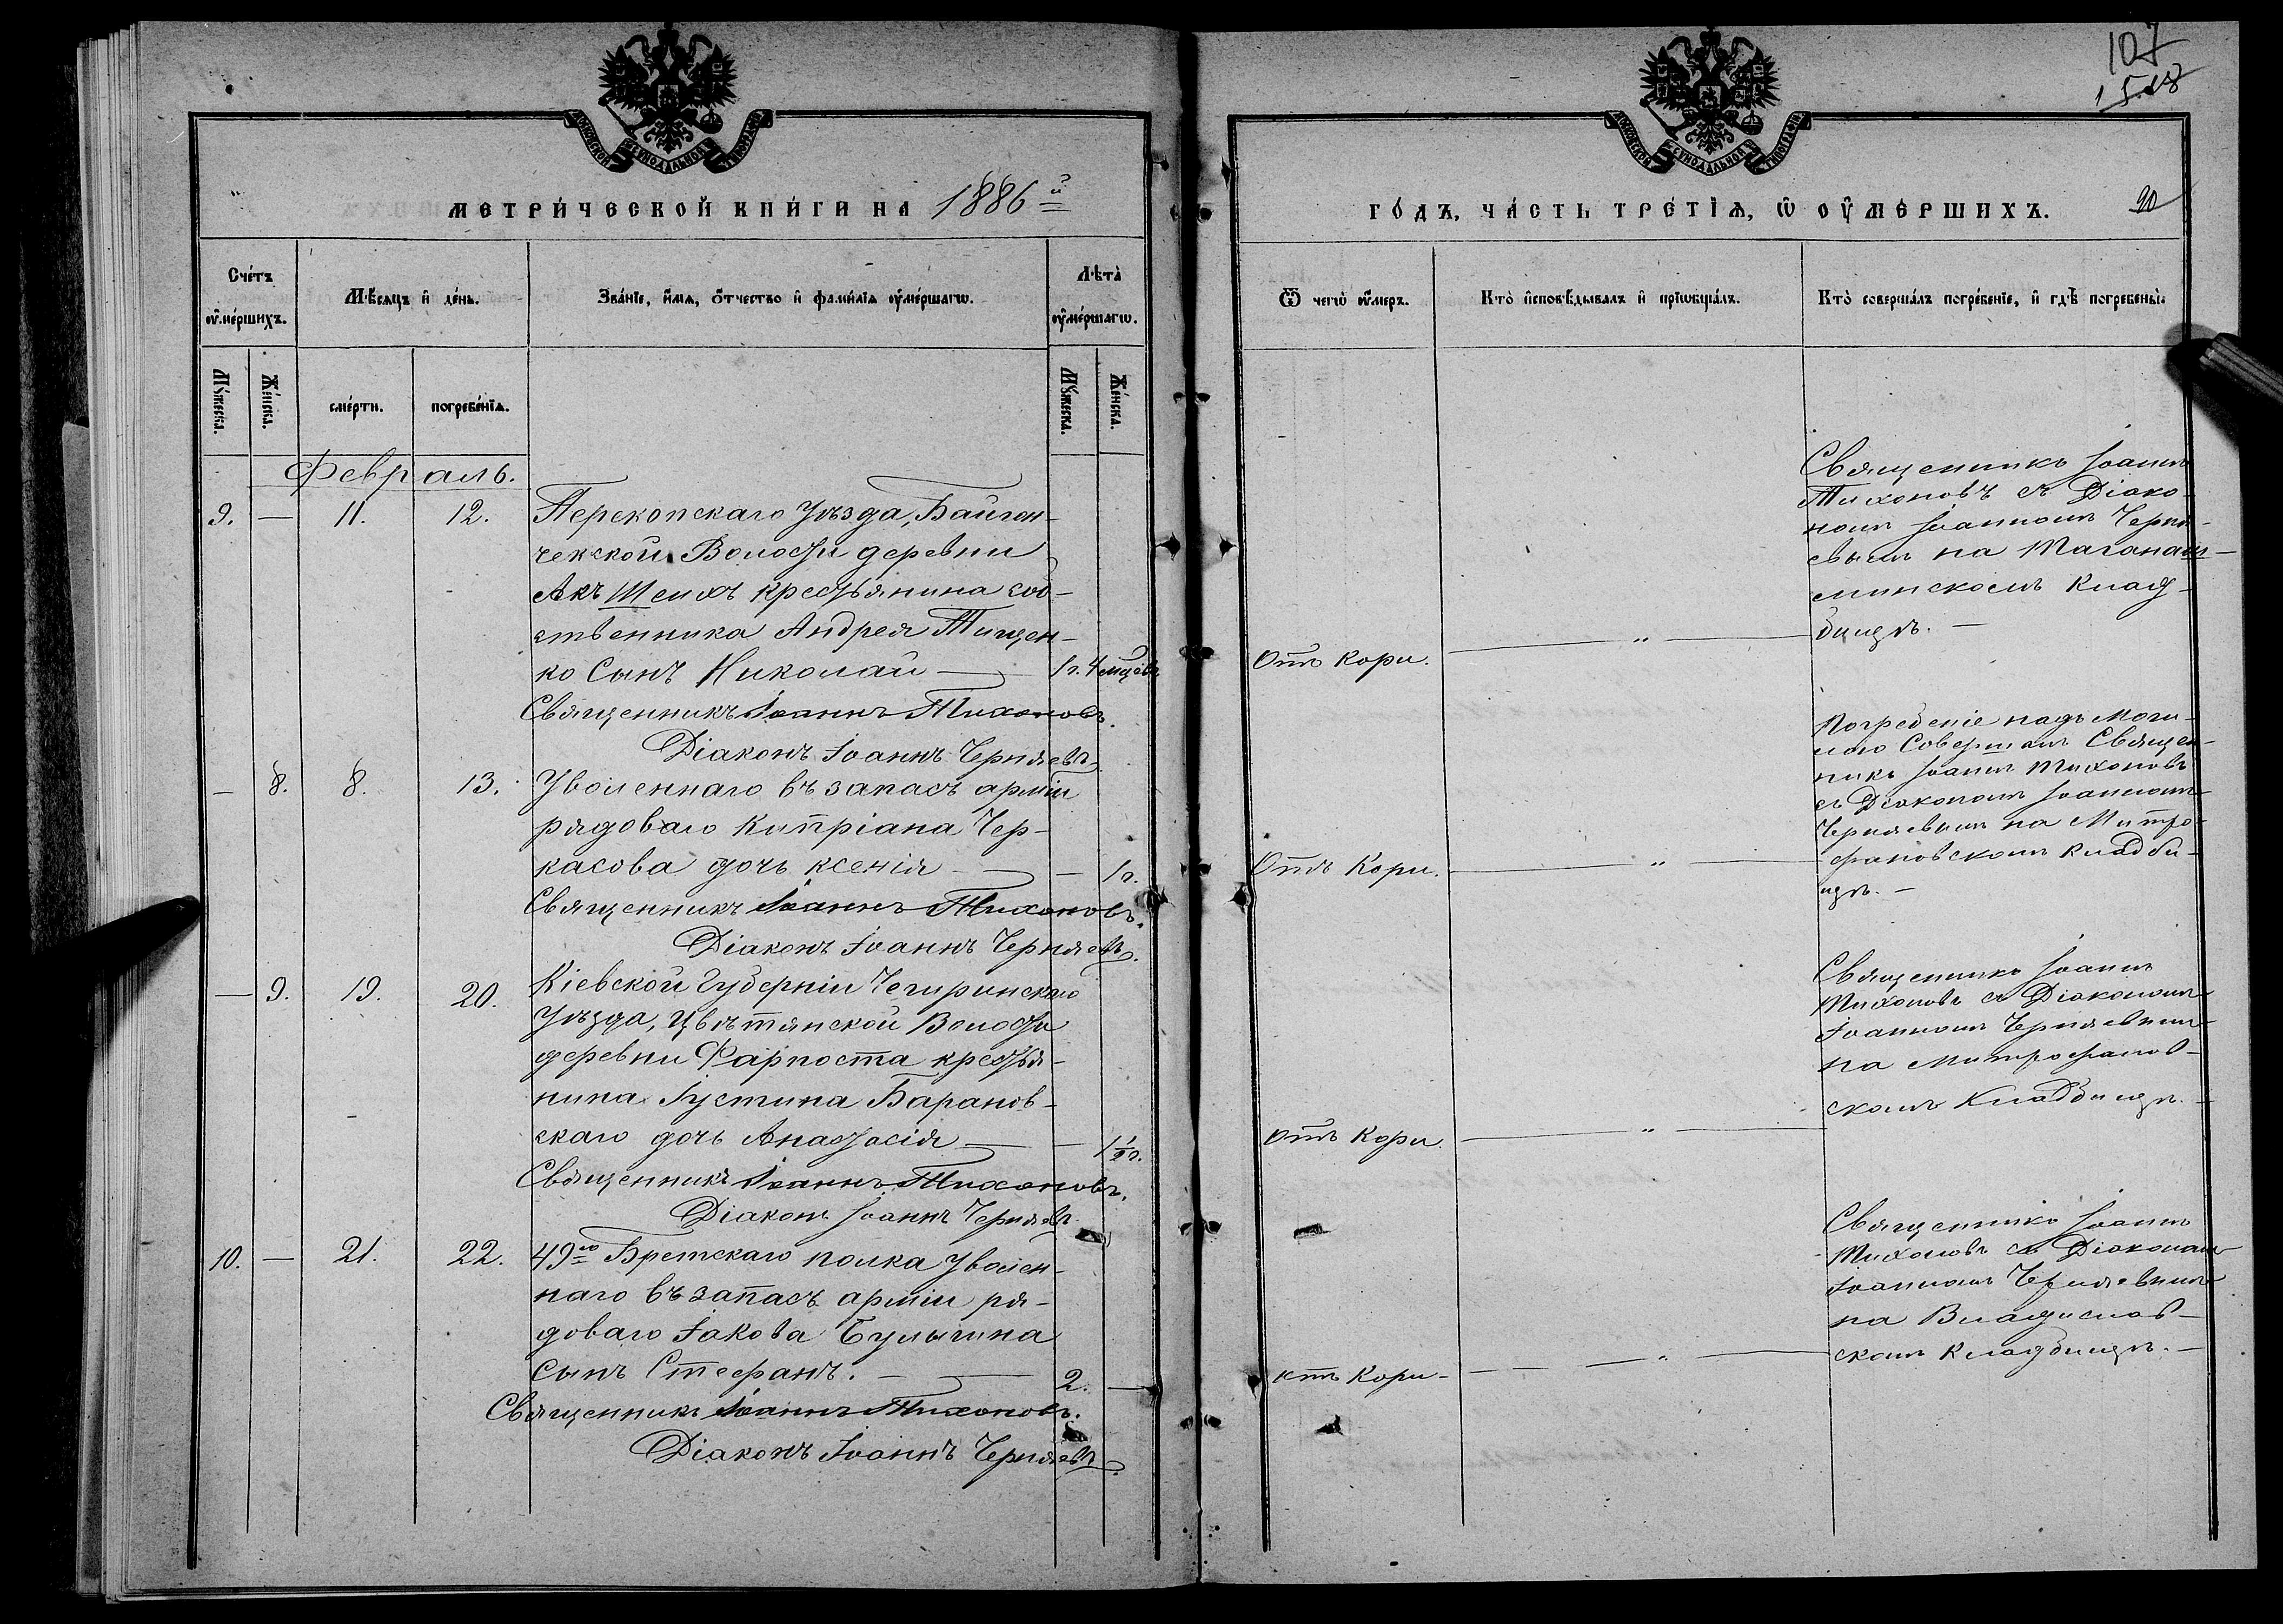 107
1518
МОСКОВСКОЙ СѴНОДАЛЬНОЙ ТИПОГРАФІИ
МОСКОВСКОЙ СѴНОДАЛЬНОЙ ТИПОГРАФІИ
МЕТРИ́ЧЕСКОЙ КНИ́ГИ НА 1886й
ГО́ДЪ, ЧА́СТЬ ТРЕ́ТІѦ, Ѿ ОУ҆МЕ́РШИХЪ. 90
Сче́тъ оу҆ме́ршихъ.
Мѣ́сяцъ и҆ де́нь.
Зва́нїе, и҆́мя, ѻ҆́тчество и҆ фами́лїя оу҆ме́ршагѡ.
Лѣта̀ оу҆ме́ршагѡ.
Ѿ чегѡ̀ оу҆́меръ.
Кто̀ и҆сповѣ́дывалъ и҆ прїѡбща́лъ.
Кто̀ соверша́лъ погребе́нїе, и҆ гдѣ̀ погребены̀.
Мꙋ́жеска.
Же́нска.
сме́рти.
погребе́нїя.
Мꙋ́жеска.
Же́нска.
Февраль.
9. — 11. 12. Перекопскаго Уѣзда, Байгон-
чекской Волости деревни
Акъ Шеихъ крестьянина соб-
ственника Андрея Тищен-
ко сынъ Николай — 1г. 4 мѣсц.
Священникъ Іоаннъ Тихоновъ.
Діаконъ Іоаннъ Черняевъ
Отъ Кори. — „ —
Священникъ Іоаннъ
Тихоновъ съ Діако-
номъ Іоанномъ Черня-
евымъ на Таганаш-
минскомъ Клад-
бищѣ. —
— 8. 8. 13. Уволеннаго въ запасъ арміи
рядоваго Кипріана Чер-
касова дочь Ксенія — — 1г.
Священникъ Іоаннъ Тихоновъ.
Діаконъ Іоаннъ Черняевъ.
Отъ Кори. — „ —
Погребеніе надъ моги-
лою Совершалъ Священ-
никъ Іоаннъ Тихоновъ
съ Діакономъ Іоанномъ
Черняевымъ на Митро-
фановскомъ кладби-
щѣ. —
— 9. 19. 20. Кіевской Губерніи Чегиринскаго
Уѣзда, Цвѣтянской Волости
деревни Фарпоста крестья-
нина Іустина Баранов-
скаго дочь Анастасія — — 1½ г.
Священникъ Іоаннъ Тихоновъ.
Діаконъ Іоаннъ Черняевъ
Отъ Кори. — „ —
Священникъ Іоаннъ
Тихоновъ съ Діакономъ
Іоанномъ Черняевымъ
на Митрофанов-
скомъ Кладбищѣ. —
10. — 21. 22. 49го Брестскаго полка Уволен-
наго въ запасъ арміи ря-
доваго Іакова Булыгина
сынъ Стефанъ. — 2. —
Священникъ Іоаннъ Тихоновъ.
Діаконъ Іоаннъ Черняевъ.
отъ Кори — „ —
Священникъ Іоаннъ
Тихоновъ съ Діакономъ
Іоанномъ Черняевымъ
на Владислав-
скомъ Кладбищѣ. —